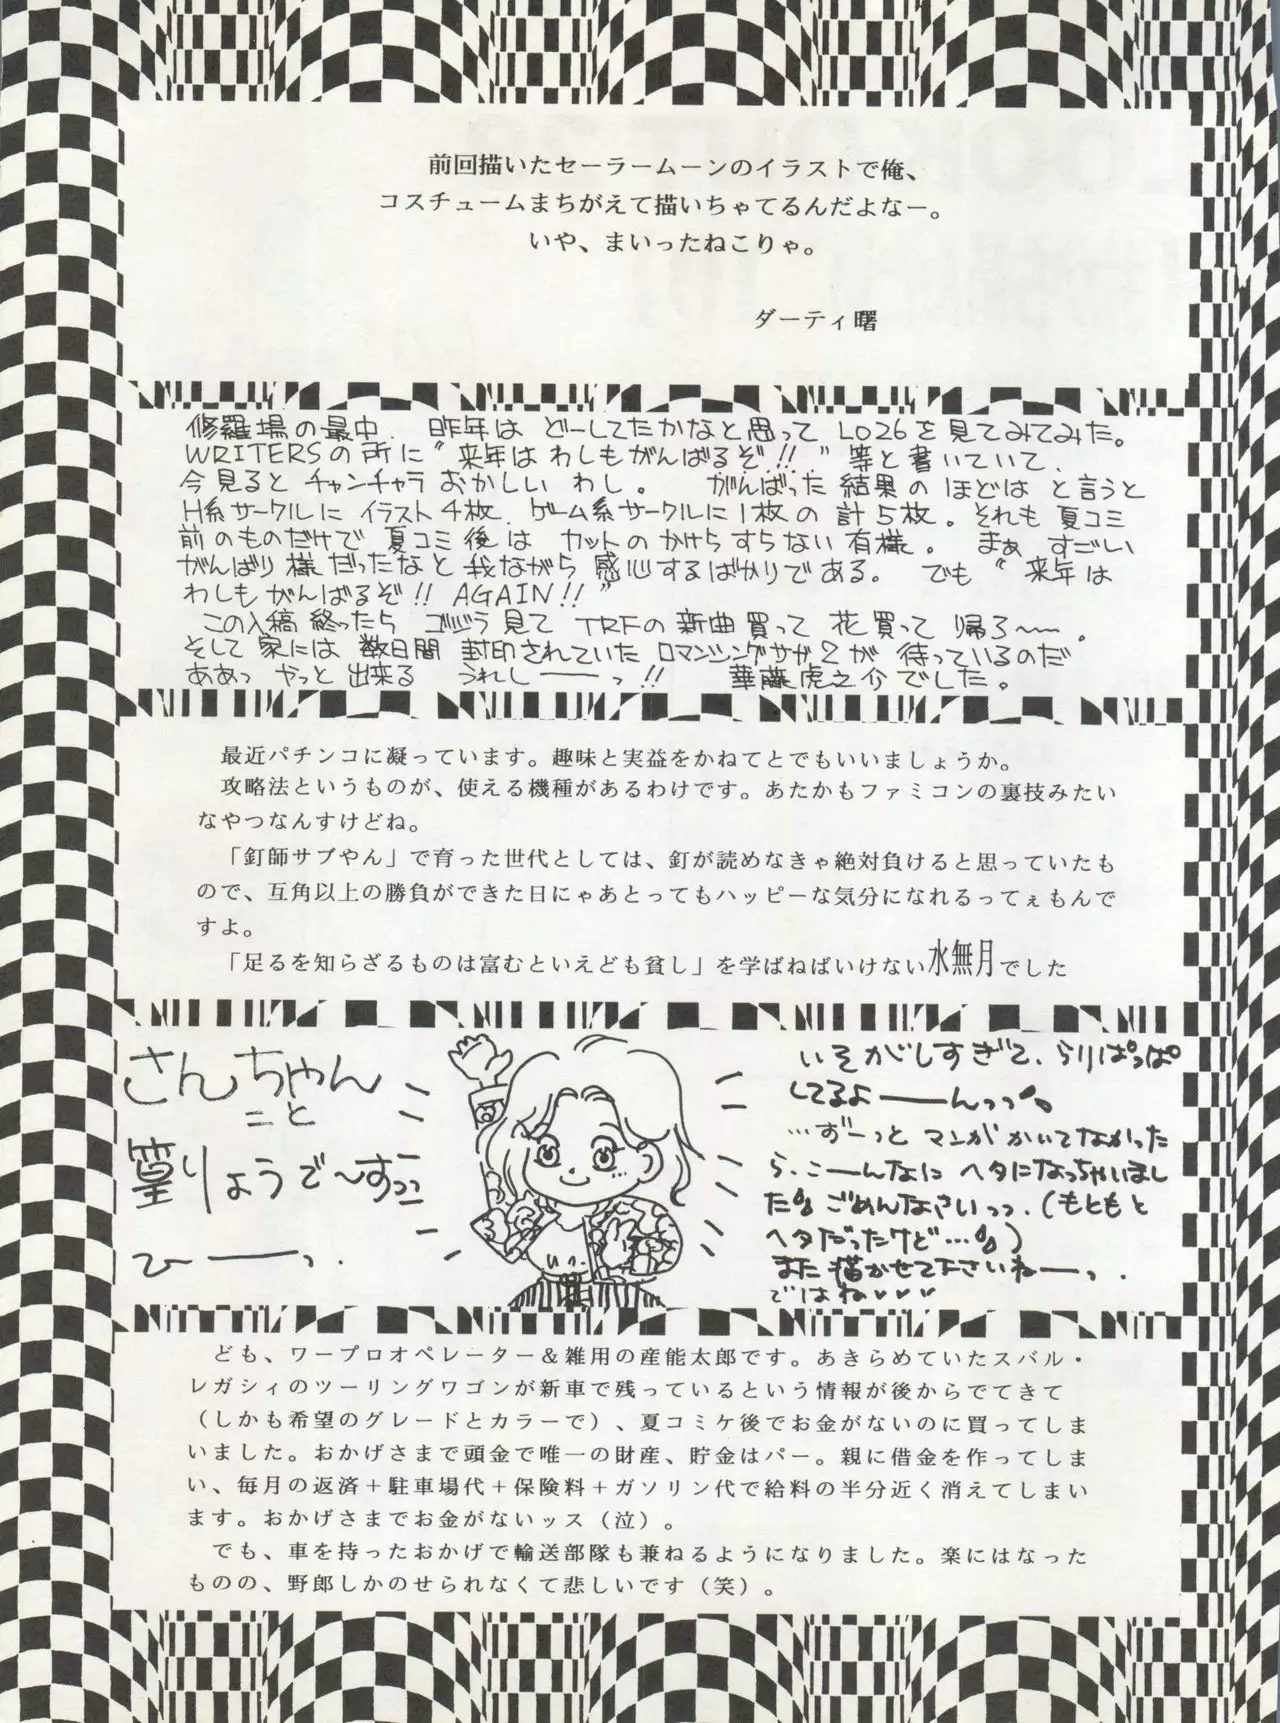 前回描いたセーラームーンのイラストで俺、
コスチュームまちがえて描いちゃてるんだよなー。
いや、まいったねこりゃ。
ダーティ曙
修羅場の最中、昨年はどーしてたかなと思ってLO26を見てみてみた。
WRITERSの所に〝来年はわしもがんばるぞ!!〟等と書いていて、
今見るとチャンチャラおかしいわし。 がんばった結果のほどはと言うと
H系サークルにイラスト4枚、ゲーム系サークルに1枚の計5枚。それも夏コミ
前のものだけで夏コミ後はカットのかけらすらない有様。まぁすごい
がんばり様だったなと我ながら感心するばかりである。でも〝来年は
わしもがんばるぞ!! AGAIN!!〟
この入稿終ったらゴジラ見てTRFの新曲買って花買って帰ろ〜〜。
そして家には数日間封印されていたロマンシングサガ2が待っているのだ
ああっやっと出来るうれしーーっ!! 華藤虎之介でした。
最近パチンコに凝っています。趣味と実益をかねてとでもいいましょうか。
攻略法というものが、使える機種があるわけです。あたかもファミコンの裏技みたい
なやつなんすけどね。
「釘師サブやん」で育った世代としては、釘が読めなきゃ絶対負けると思っていたも
ので、互角以上の勝負ができた日にゃあとってもハッピーな気分になれるってぇもんで
すよ。
「足るを知らざるものは富むといえども貧し」を学ばねばいけない水無月でした
さんちゃん
こと
篁りょうで〜すっっ
ひーーっ.
いそがしすぎて、らりぱっぱ
してるよーーんっっ
…ずーっとマンガかいてなかった
ら、こーんなにヘタになっちゃいまし
た ごめんなさいっっ.(もともと
ヘタだったけど… )
また描かせて下さいねーーっ.
ではね♥♥♥
ども、ワープロオペレーター＆雑用の産能太郎です。あきらめていたスバル・
レガシィのツーリングワゴンが新車で残っているという情報が後からでてきて
（しかも希望のグレードとカラーで）、夏コミケ後でお金がないのに買ってしま
いました。おかげさまで頭金で唯一の財産、貯金はパー。親に借金を作ってしま
い、毎月の返済＋駐車場代＋保険料＋ガソリン代で給料の半分近く消えてしまい
ます。おかげさまでお金がないッス（泣）。
でも、車を持ったおかげで輸送部隊も兼ねるようになりました。楽にはなった
ものの、野郎しかのせられなくて悲しいです（笑）。